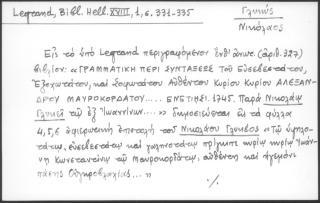 Legrand, Bibl. Hell. XVIII, 1, σ. 331-335
Γλυκύς
Νικόλαος
Εἰς τὸ ὑπὸ Legrand περιγραφόμενον ἐνθ' ἀνωτ. (ἀριθ. 327)
βιβλίον: «ΓΡΑΜΜΑΤΙΚΗ ΠΕΡΙ ΣΥΝΤΑΞΕΩΣ Τοῦ Εὐσεβεστάτου,
Ἐξοχωτάτου, καὶ Σοφωτάτου Αὐθέντου Κυρίου Κυρίου ΑΛΕΞΑΝ-
ΔΡΟΥ ΜΑΥΡΟΚΟΡΔΑΤΟΥ..... ΕΝΕΤΙΗΣΙ. 1745. Παρὰ Νικολάῳ
Γλυκεῖ τῷ ἐξ Ἰωαννίνων....» δημοσιεύεται εἰς τὰ φύλλα
4,5,6 ἀφιερωτικὴ ἐπιστολὴ τοῦ Νικολάου Γλυκέος «Τῷ ὑψηλο-
τάτῳ, εὐσεβεστάτῳ καὶ γαληνοτάτῳ πρίγκιπι κυρίῳ κυρίῳ Ἰωάν-
νῃ Κωνσταντίνῳ τῷ Μαυροκορδάτῳ, αὐθέντῃ καὶ ἡγεμόνι
πάσης Οὐγκροβλαχίας...»
./.